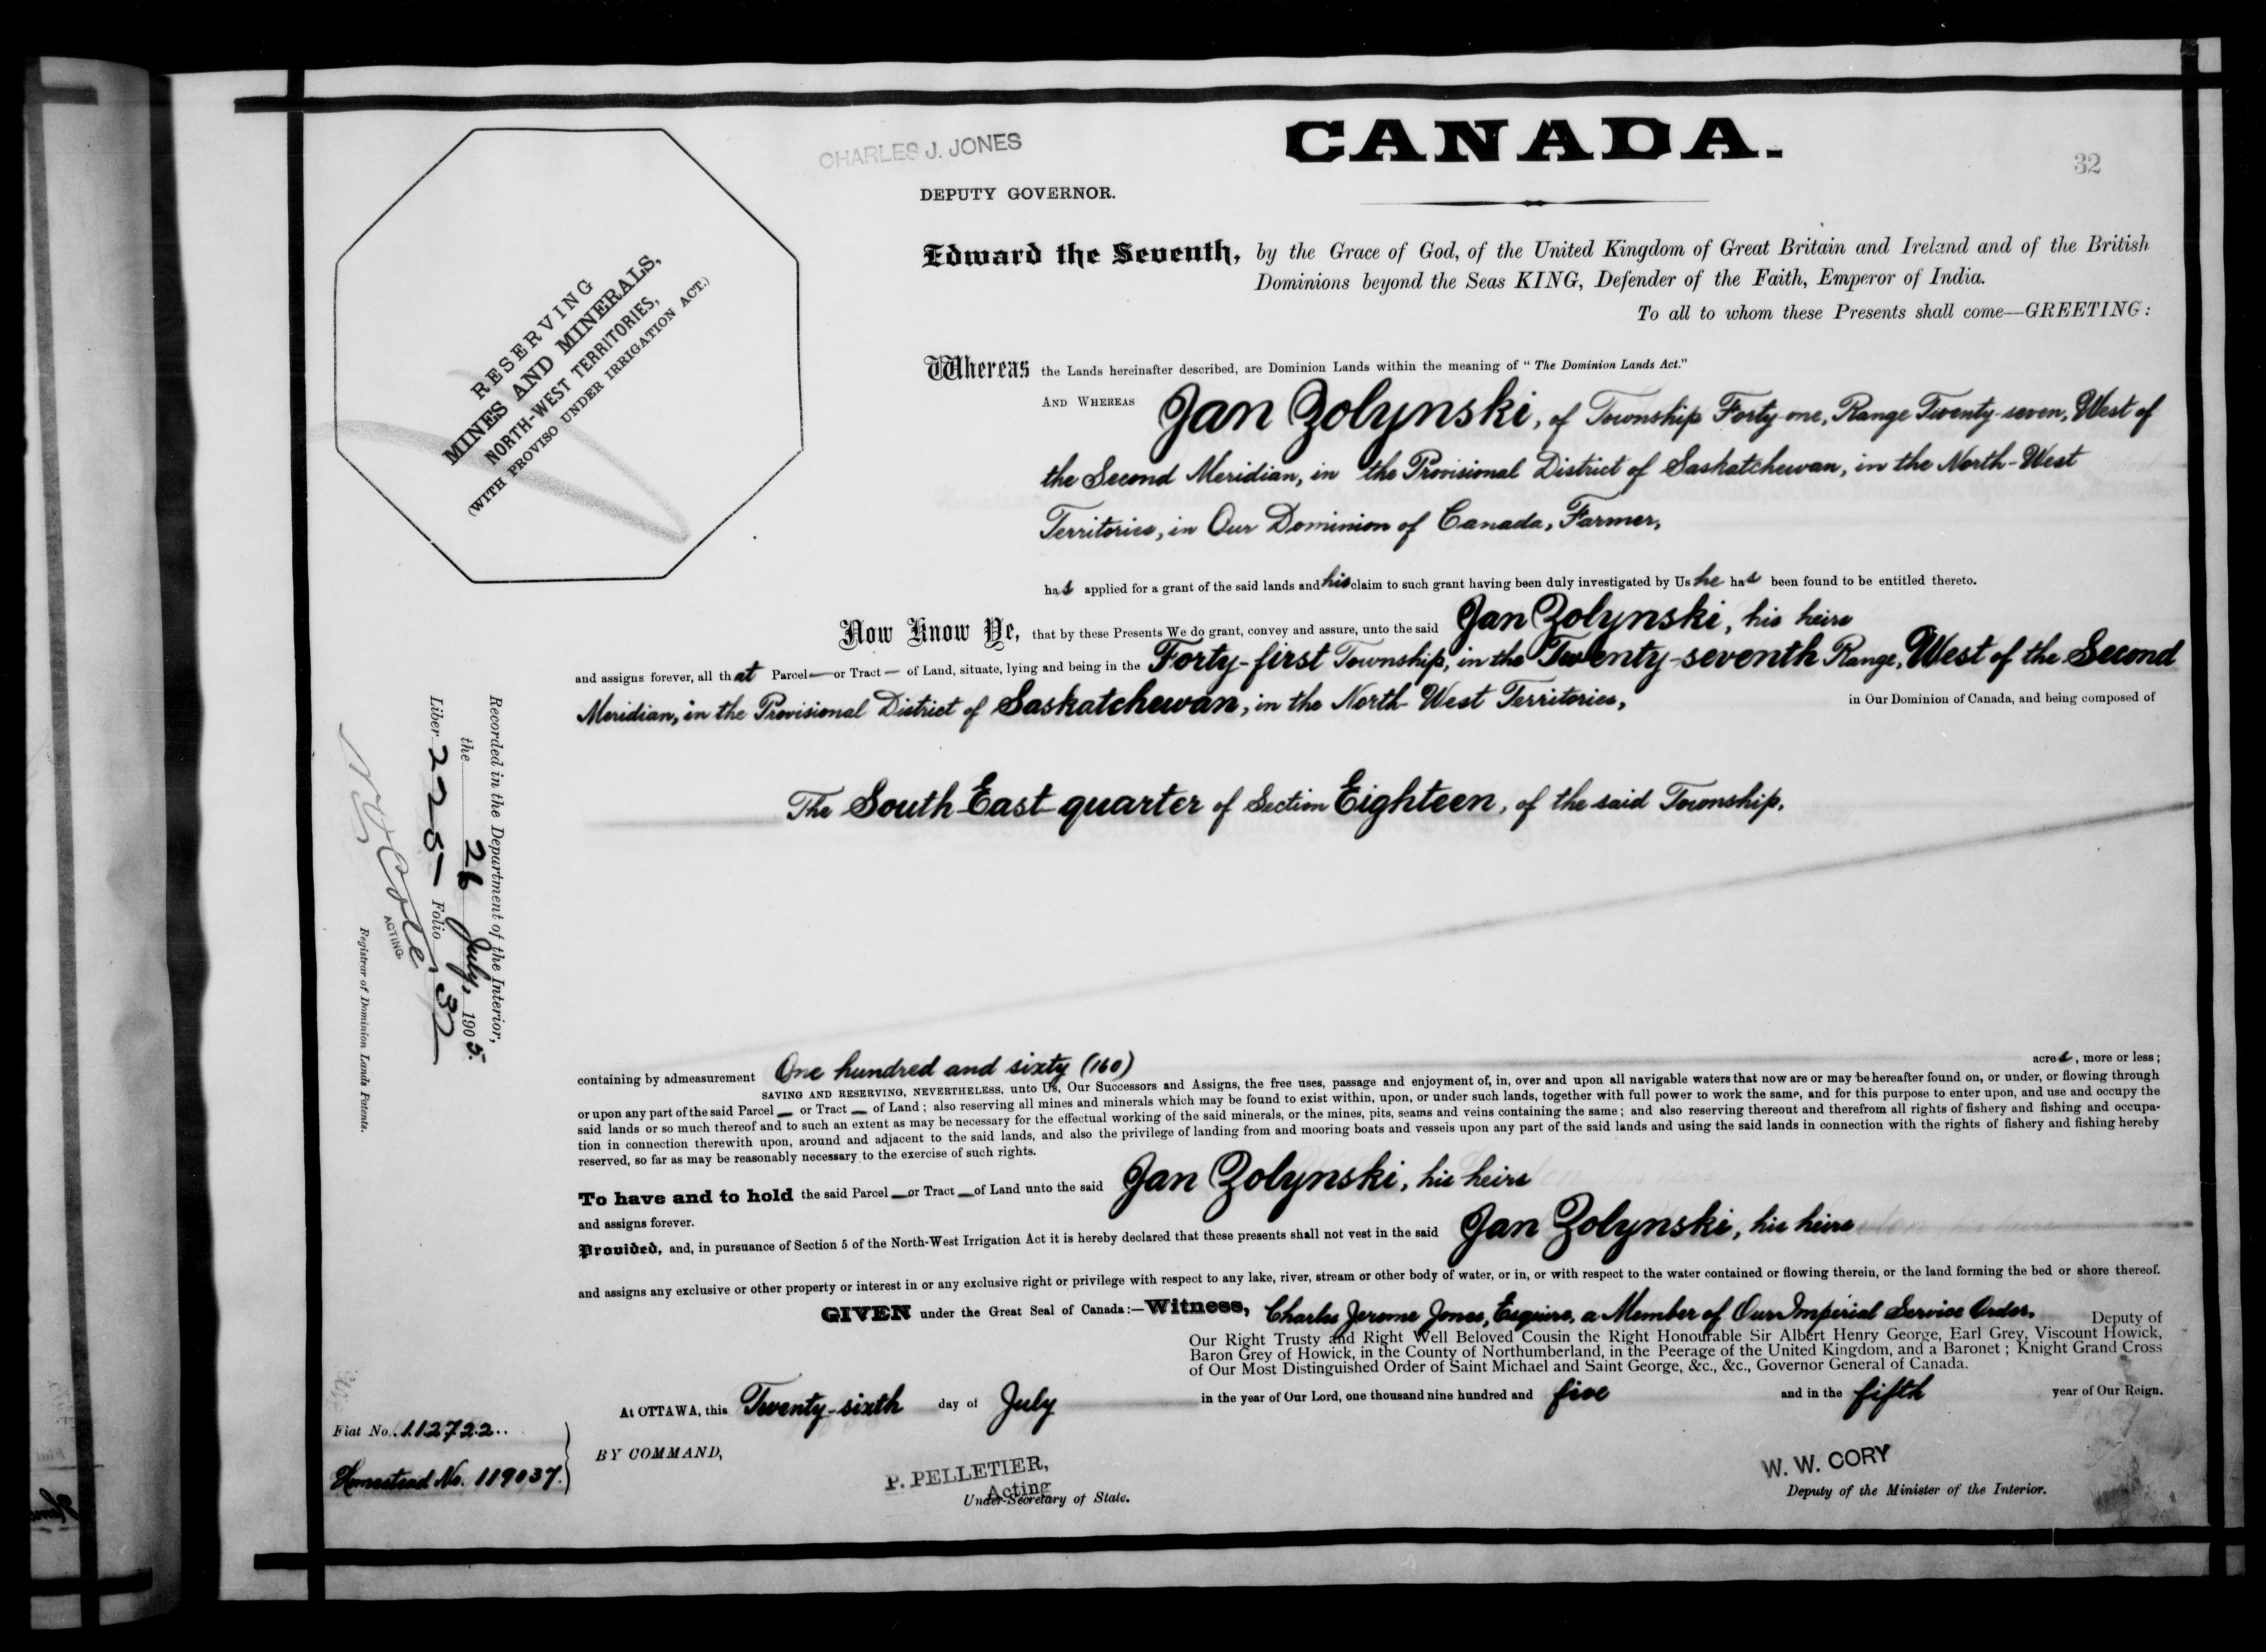 CANADA.
CHARLES J. JONES
32
DEPUTY GOVERNOR.
RESERVING
MINES AND MINERALS,
NORTH-WEST TERRITORIES,
(WITH PROVISO UNDER IRRIGATION ACT.)
Edward the Seventh, by the Grace of God, of the United Kingdom of Great Britain and Ireland and of the British
Dominions beyond the Seas KING, Defender of the Faith, Emperor of India.
To all to whom these Presents shall come—GREETING:
Whereas the Lands hereinafter described, are Dominion Lands within the meaning of "The Dominion Lands Act."
AND WHEREAS Jan Zolynski, of Township Forty-one, Range Twenty-seven, West of
the Second Meridian, in the Provisional District of Saskatchewan, in the North-West
Territories, in Our Dominion of Canada, Farmer,
has applied for a grant of the said lands and his claim to such grant having been duly investigated by Us he has been found to be entitled thereto.
Now Know Ye, that by these Presents We do grant, convey and assure, unto the said Jan Zolynski, his heirs
and assigns forever, all that Parcel — or Tract — of Land, situate, lying and being in the Forty-first Township, in the Twenty-seventh Range, West of the Second
Meridian, in the Provisional District of Saskatchewan, in the North-West Territories, in Our Dominion of Canada, and being composed of
The South East quarter of Section Eighteen, of the said Township.
Recorded in the Department of the Interior,
the 26 July, 1905.
Liber 225 — Folio 32
ACTING
Registrar of Dominion Lands Patents.
containing by admeasurement One hundred and sixty (160) acres, more or less;
SAVING AND RESERVING, NEVERTHELESS, unto Us, Our Successors and Assigns, the free uses, passage and enjoyment of, in, over and upon all navigable waters that now are or may be hereafter found on, or under, or flowing through
or upon any part of the said Parcel — or Tract — of Land; also reserving all mines and minerals which may be found to exist within, upon, or under such lands, together with full power to work the same, and for this purpose to enter upon, and use and occupy the
said lands or so much thereof and to such an extent as may be necessary for the effectual working of the said minerals, or the mines, pits, seams and veins containing the same; and also reserving thereout and therefrom all rights of fishery and fishing and occupa-
tion in connection therewith upon, around and adjacent to the said lands, and also the privilege of landing from and mooring boats and vessels upon any part of the said lands and using the said lands in connection with the rights of fishery and fishing hereby
reserved, so far as may be reasonably necessary to the exercise of such rights.
To have and to hold the said Parcel — or Tract — of Land unto the said Jan Zolynski, his heirs
and assigns forever.
Provided, and, in pursuance of Section 5 of the North-West Irrigation Act it is hereby declared that these presents shall not vest in the said Jan Zolynski, his heirs
and assigns any exclusive or other property or interest in or any exclusive right or privilege with respect to any lake, river, stream or other body of water, or in, or with respect to the water contained or flowing therein, or the land forming the bed or shore thereof.
GIVEN under the Great Seal of Canada:—Witness, Charles Jerome Jones, Esquire, a Member of Our Imperial Service Order, Deputy of
Our Right Trusty and Right Well Beloved Cousin the Right Honourable Sir Albert Henry George, Earl Grey, Viscount Howick,
Baron Grey of Howick, in the County of Northumberland, in the Peerage of the United Kingdom, and a Baronet; Knight Grand Cross
of Our Most Distinguished Order of Saint Michael and Saint George, &c., &c., Governor General of Canada.
At OTTAWA, this Twenty-sixth day of July in the year of Our Lord, one thousand nine hundred and five and in the fifth year of Our Reign.
Fiat No. 112722
Homestead No. 119037.
BY COMMAND,
P. PELLETIER,
Acting
Under-Secretary of State.
W. W. CORY
Deputy of the Minister of the Interior.